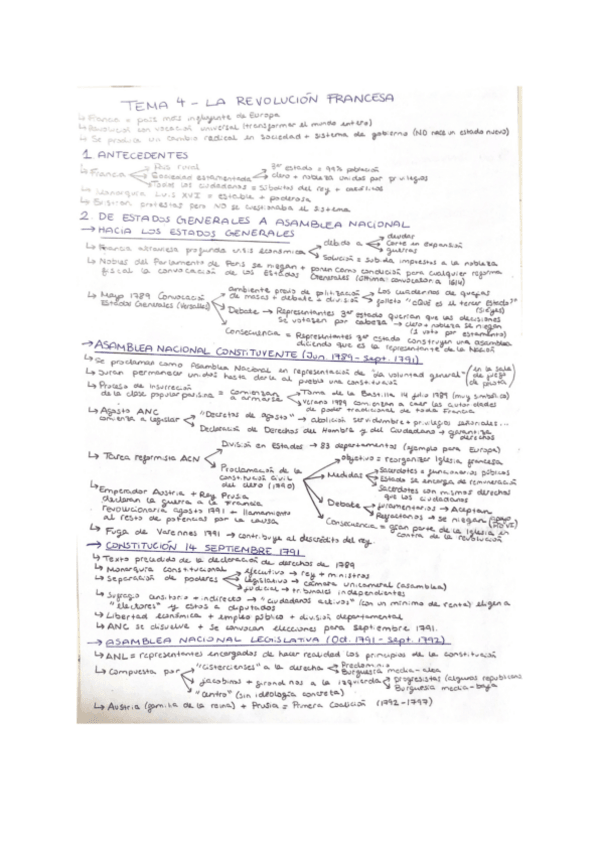 TEMA 4 - LA REVOLUCIÓN FRANCESA
↳ Francia = país más influyente de Europa
↳ Revolución con vocación universal (transformar el mundo entero)
↳ Se produce un cambio radical en sociedad + sistema de gobierno (NO nace un estado nuevo)
1. ANTECEDENTES
↳ Francia
País rural
Sociedad estamentada
3er estado = 99% población
clero + nobleza unidos por privilegios
Todos los ciudadanos = súbditos del rey + católicos
↳ Monarquía Luis XVI = estable + poderosa
↳ Existían protestas pero NO se cuestionaba el sistema
2. DE ESTADOS GENERALES A ASAMBLEA NACIONAL
→ HACIA LOS ESTADOS GENERALES
↳ Francia atraviesa profunda crisis económica
debido a
deudas
Corte en expansión
guerras
Solución = subida impuestos a la nobleza
↳ Nobles del Parlamento de París se niegan + ponen como condición para cualquier reforma
fiscal la convocación de los Estados Generales (última convocatoria 1614)
↳ Mayo 1789 Convocación
Estados Generales (Versalles)
ambiente previo de politización
de masas + debate + división
Los cuadernos de quejas
folleto "¿Qué es el tercer Estado?"
(Sieyès)
Debate → Representantes 3er estado querían que las decisiones
se votasen por cabeza → clero + nobleza se niegan
(1 voto por estamento)
Consecuencia = Representantes 3er estado construyen una asamblea
diciendo que es la representante de la Nación
→ ASAMBLEA NACIONAL CONSTITUYENTE (Jun. 1789 - Sept. 1791)
↳ Se proclaman como Asamblea Nacional en representación de "la voluntad general"
↳ Juran permanecer unidos hasta darle al pueblo una constitución
(en la sala de juego de pelota)
↳ Proceso de insurrección
de la clase popular parisina = comienzan
a armarse
Toma de la Bastilla 14 julio 1789 (muy simbólico)
Verano 1789 comienzan a caer las autoridades
de poder tradicional de toda Francia
↳ Agosto ANC
comienza a legislar
"Decretos de agosto" → abolición servidumbre + privilegios señoriales...
Declaración de Derechos del Hombre y del Ciudadano → garantiza
derechos
↳ Tarea reformista ACN
División en Estados → 83 departamentos (ejemplo para Europa)
Proclamación de la
constitución civil
del clero (1790)
objetivo = reorganizar Iglesia francesa
Medidas
Sacerdotes = funcionarios públicos
Estado se encarga de remuneración
Sacerdotes con mismos derechos
que los ciudadanos
Debate
juramentarios → Aceptan
Refractarios → se niegan
Consecuencia = gran parte de la Iglesia en
contra de la revolución
↳ Emperador Austria + Rey Prusia
declaran la guerra a la Francia
revolucionaria agosto 1791 + llamamiento
al resto de potencias por la causa
↳ Fuga de Varennes 1791 → contribuye al descrédito del rey
→ CONSTITUCIÓN 14 SEPTIEMBRE 1791
↳ Texto precedido de la declaración de derechos de 1789
↳ Monarquía constitucional
↳ Separación de poderes
ejecutivo → rey + ministros
legislativo → cámara unicameral (asamblea)
judicial → tribunales independientes
↳ Sufragio censitario + indirecto → "ciudadanos activos" (con un mínimo de renta) eligen a
"electores" y estos a diputados
↳ Libertad económica + empleo público + división departamental
↳ ANC se disuelve + se convocan elecciones para septiembre 1791.
→ ASAMBLEA NACIONAL LEGISLATIVA (Oct. 1791 - Sept. 1792)
↳ ANL = representantes encargados de hacer realidad los principios de la constitución
↳ Compuesta por
"cistercienses" a la derecha
Predominio
Burguesía media-alta
jacobinos + girondinos a la izquierda
progresistas (algunos republicanos
Burguesía media-baja
"centro" (sin ideología concreta)
↳ Austria (familia de la reina) + Prusia = Primera Coalición (1792-1797)